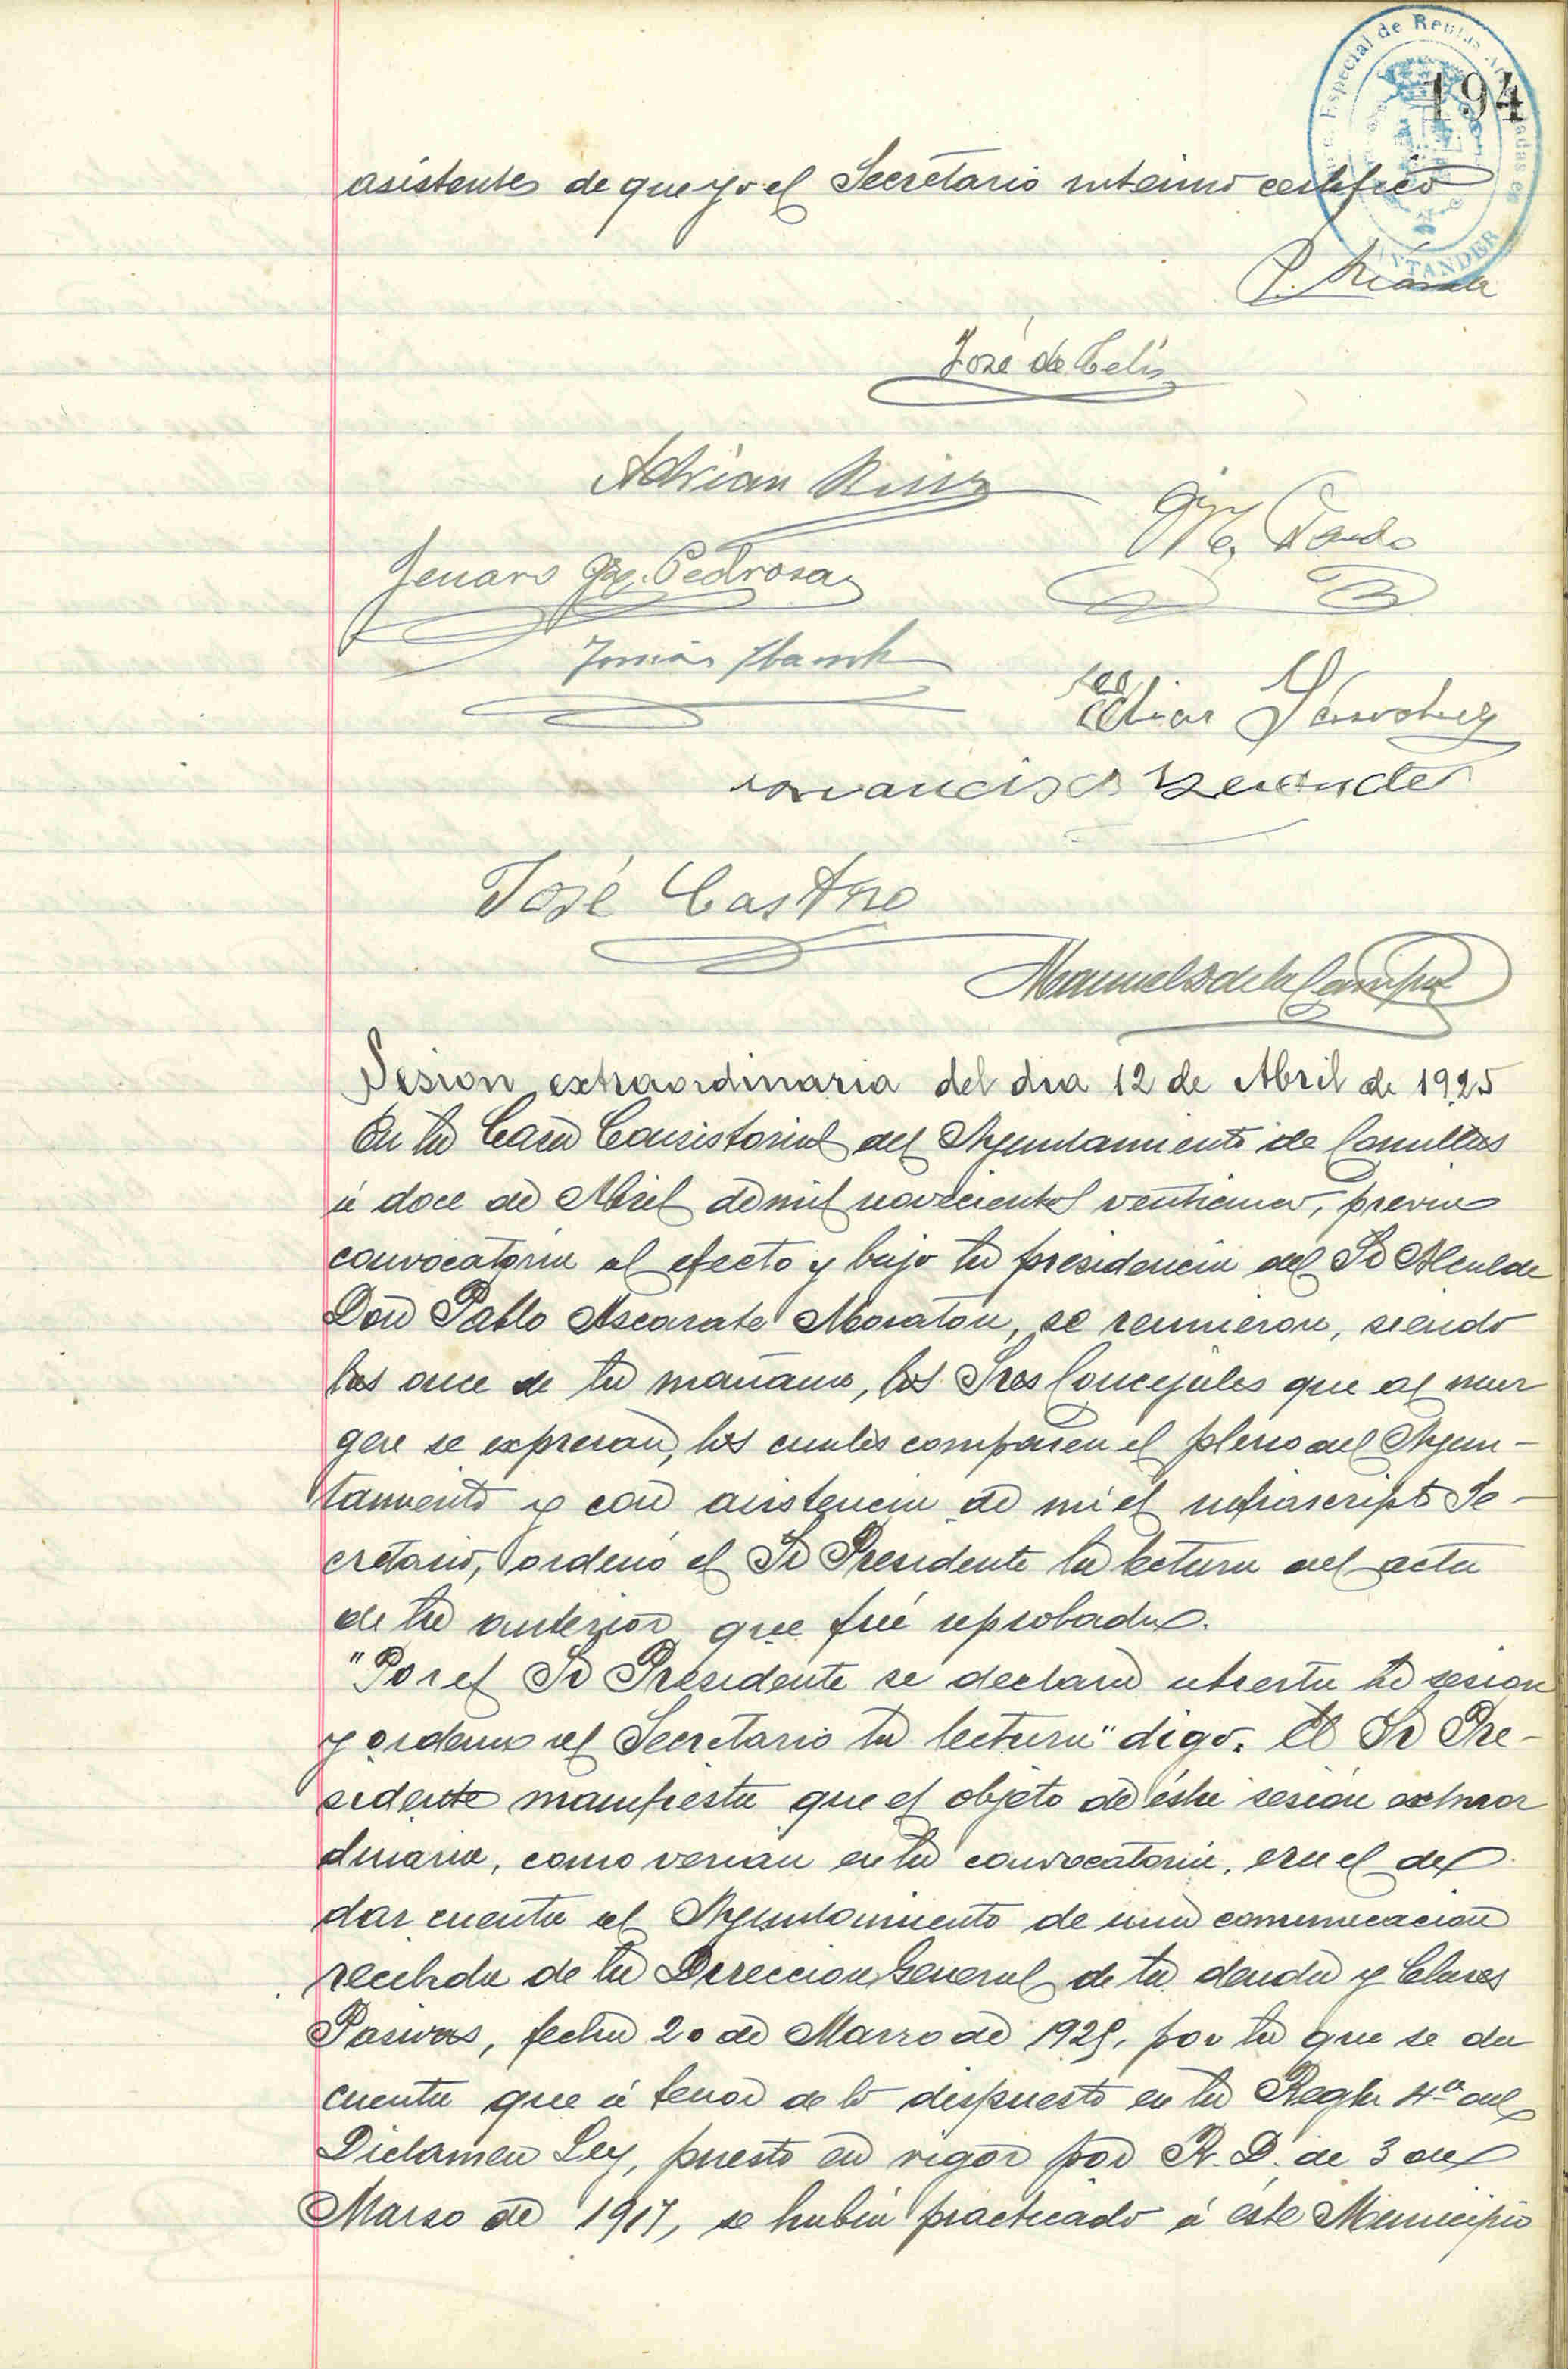 Especial de Rentas
194
SANTANDER
asistentes de que yo el Secretario interino certifico
José de Celis
Adrian Ruiz
M. Pando
Genaro Gz. Pedrosa
Tomás
Elias Sanchez
José Castro
Manuel de la Campa
Sesion extraordinaria del dia 12 de Abril de 1925
En la Casa Consistorial del Ayuntamiento de Comillas
á doce de Abril de mil novecientos venticinco, previa
convocatoria al efecto y bajo la presidencia del Sr Alcalde
Don Pablo Ascarate Moraton, se reunieron, siendo
las once de la mañana, los Sres Concejales que al mar
gen se expresan, los cuales componen el pleno del Ayun-
tamiento y con asistencia de mi el infrascripto Se-
cretario, ordenó el Sr Presidente la letura del acta
de la anterior que fué aprobada.
"Por el Sr Presidente se declara abierta la sesion
y ordena al Secretario la lectura" digo. El Sr Pre-
sidente manifiesta que el objeto de ésta sesión extraor
dinaria, como verian en la convocatoria, era el de
dar cuenta al Ayuntamiento de una comunicacion
recibida de la Direccion General de la deuda y Clases
Pasivas, fecha 20 de Marzo de 1925, por la que se da
cuenta que á tenor de lo dispuesto en la Regla 4ª del
Dictamen Ley, puesto en vigor por R. D. de 3 de
Marzo de 1917, se habia practicado á éste Municipio